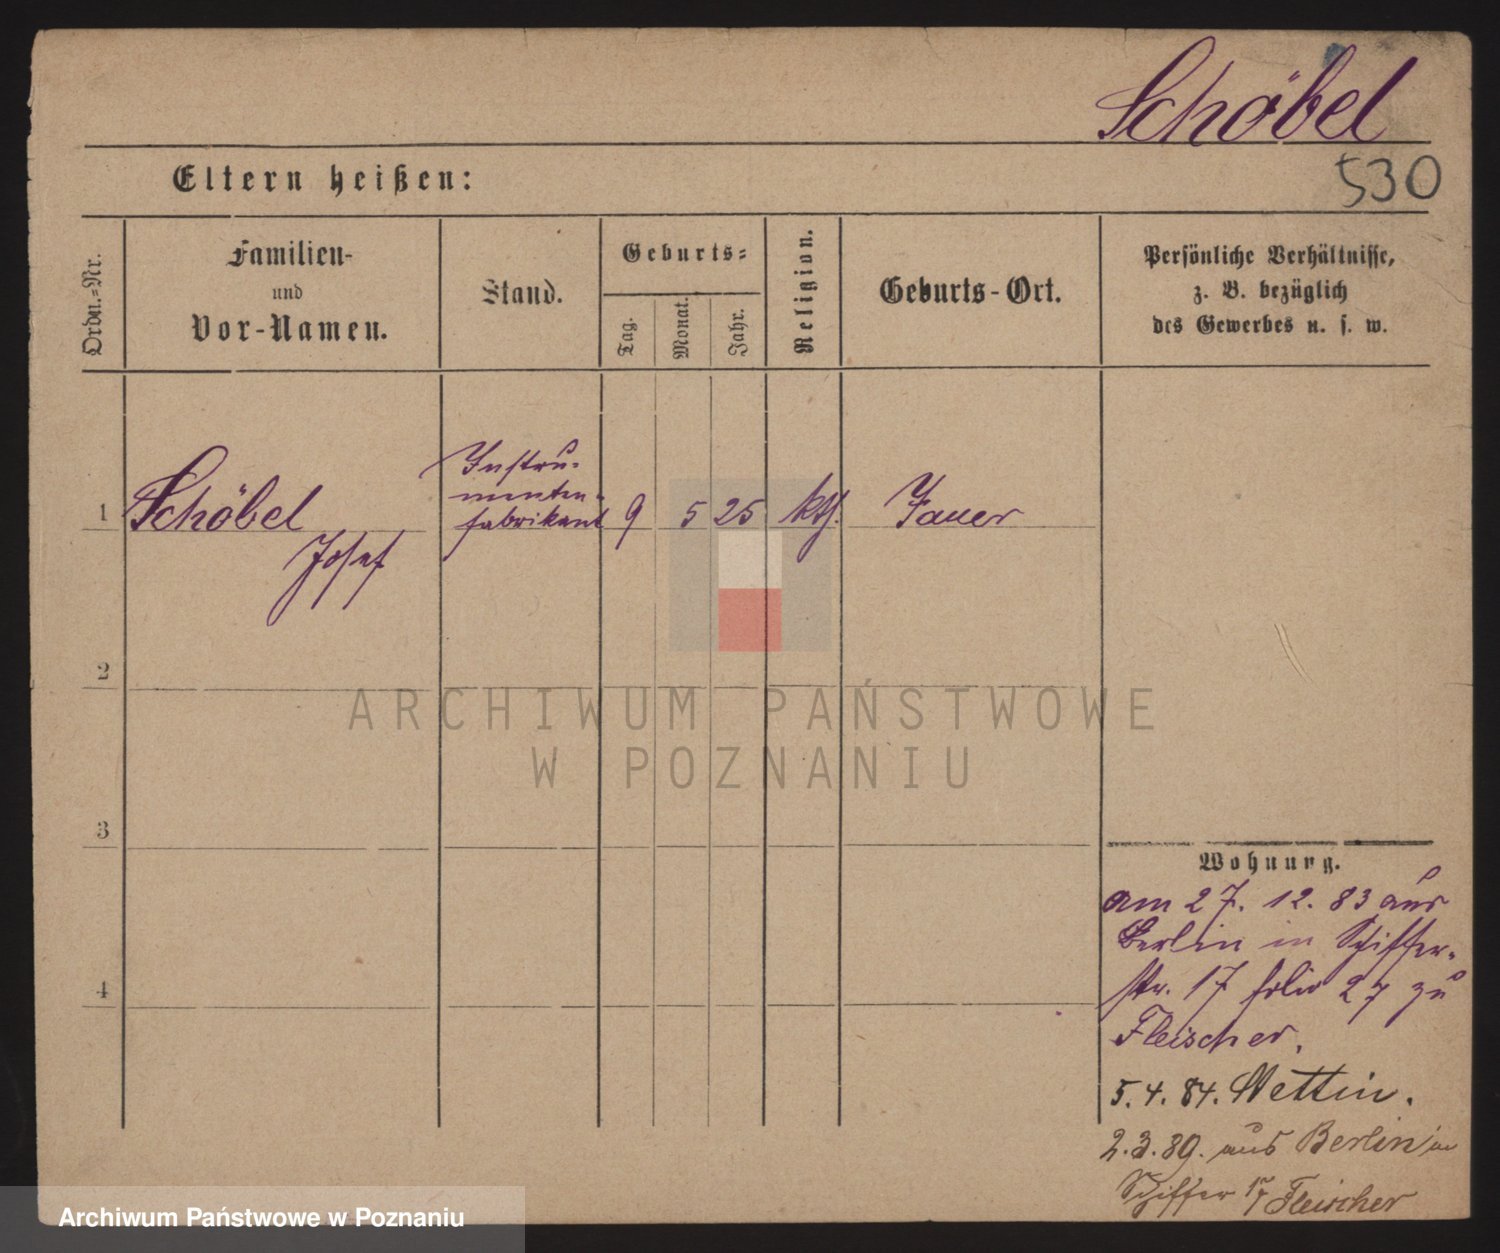 Schöbel
530
Eltern heißen:
Ordn.-Nr.
Familien-
und
Vor-Namen.
Stand.
Geburts-
Tag.
Monat.
Jahr.
Religion.
Geburts-Ort.
Persönliche Verhältnisse,
z. B. bezüglich
des Gewerbes u. s. w.
1
Schöbel
Josef
Instru-
menten-
fabrikant
9
5
25
kth.
Jauer
2
3
4
Wohnung.
am 27. 12. 83 aus
Berlin in Schiffer-
str. 17 folio 27 zu
Fleischer.
5. 4. 84. Stettin.
2. 3. 89. aus Berlin in
Schiffer 17 Fleischer
ARCHIWUM PAŃSTWOWE
W POZNANIU
Archiwum Państwowe w Poznaniu